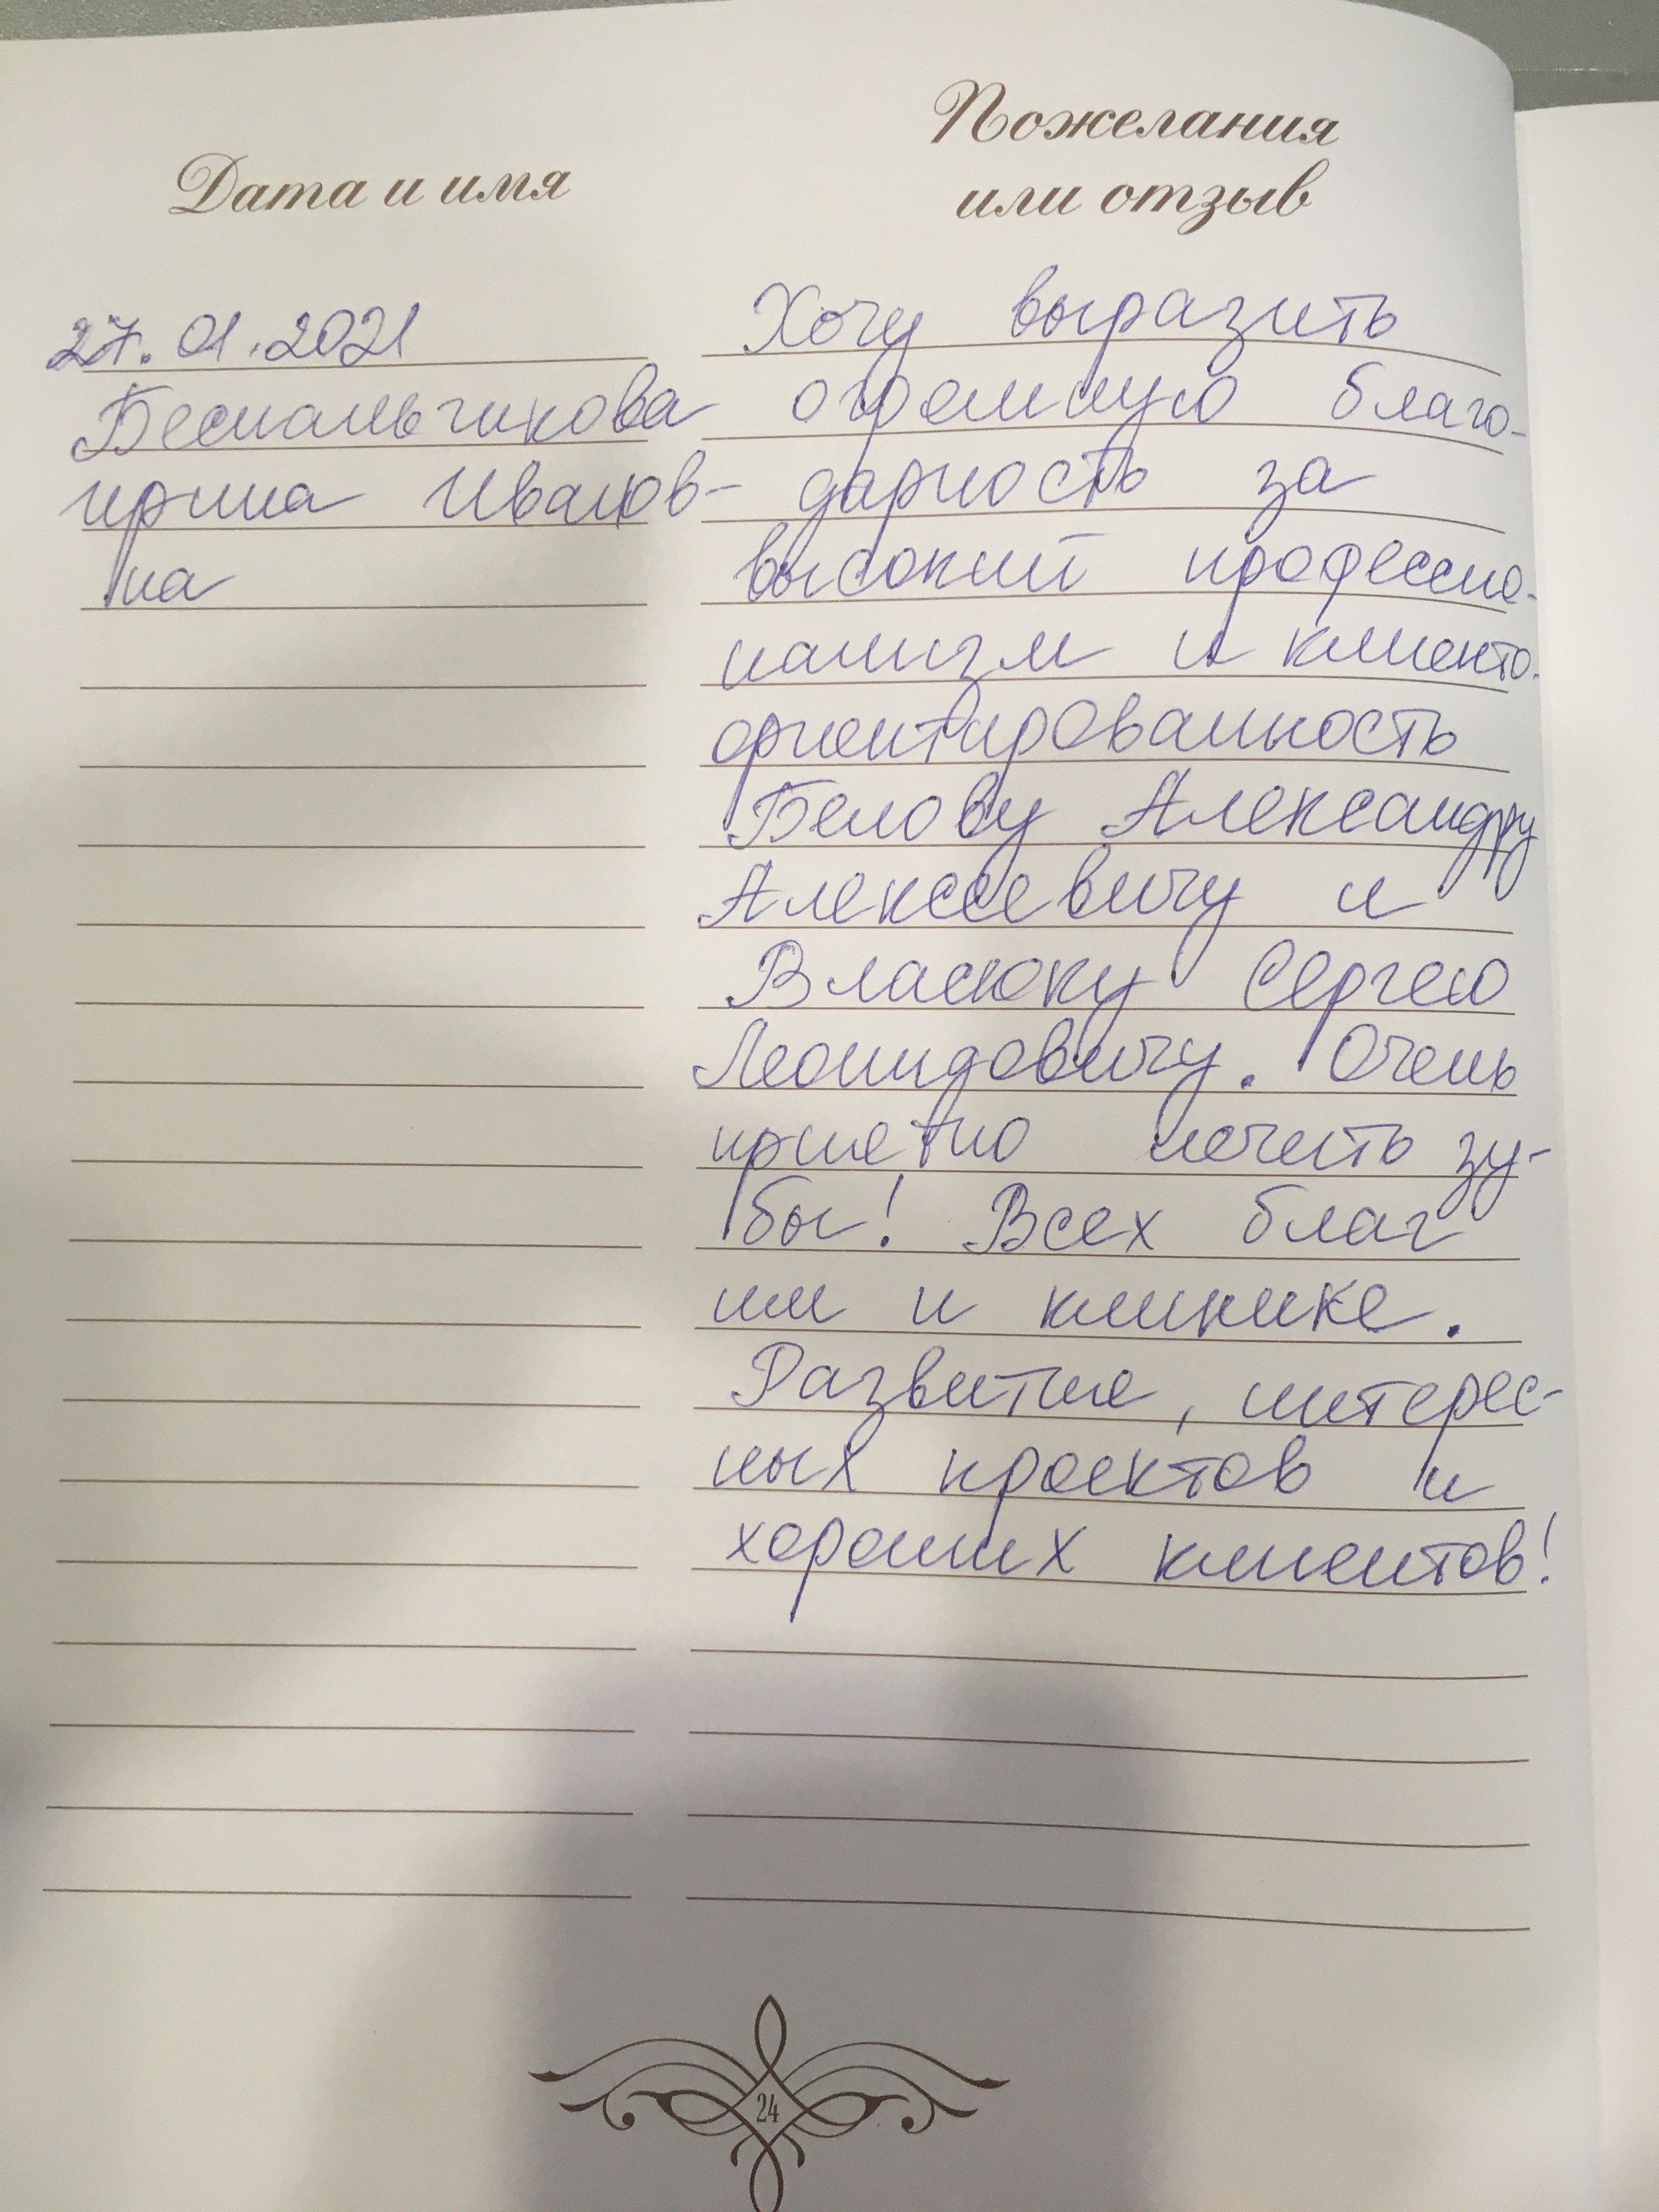 Дата и имя
27.01.2021
Беспальчикова
Ирина Иванов-
на
Пожелания
или отзыв
Хочу выразить
огромную благо-
дарность за
высокий профессио-
нализм и клиенто-
ориентированность
Белову Александру
Алексеевичу и
Власюку Сергею
Леонидовичу. Очень
приятно лечить зу-
бы! Всех благ
им и клинике.
Развития, интерес-
ных проектов и
хороших клиентов!
24